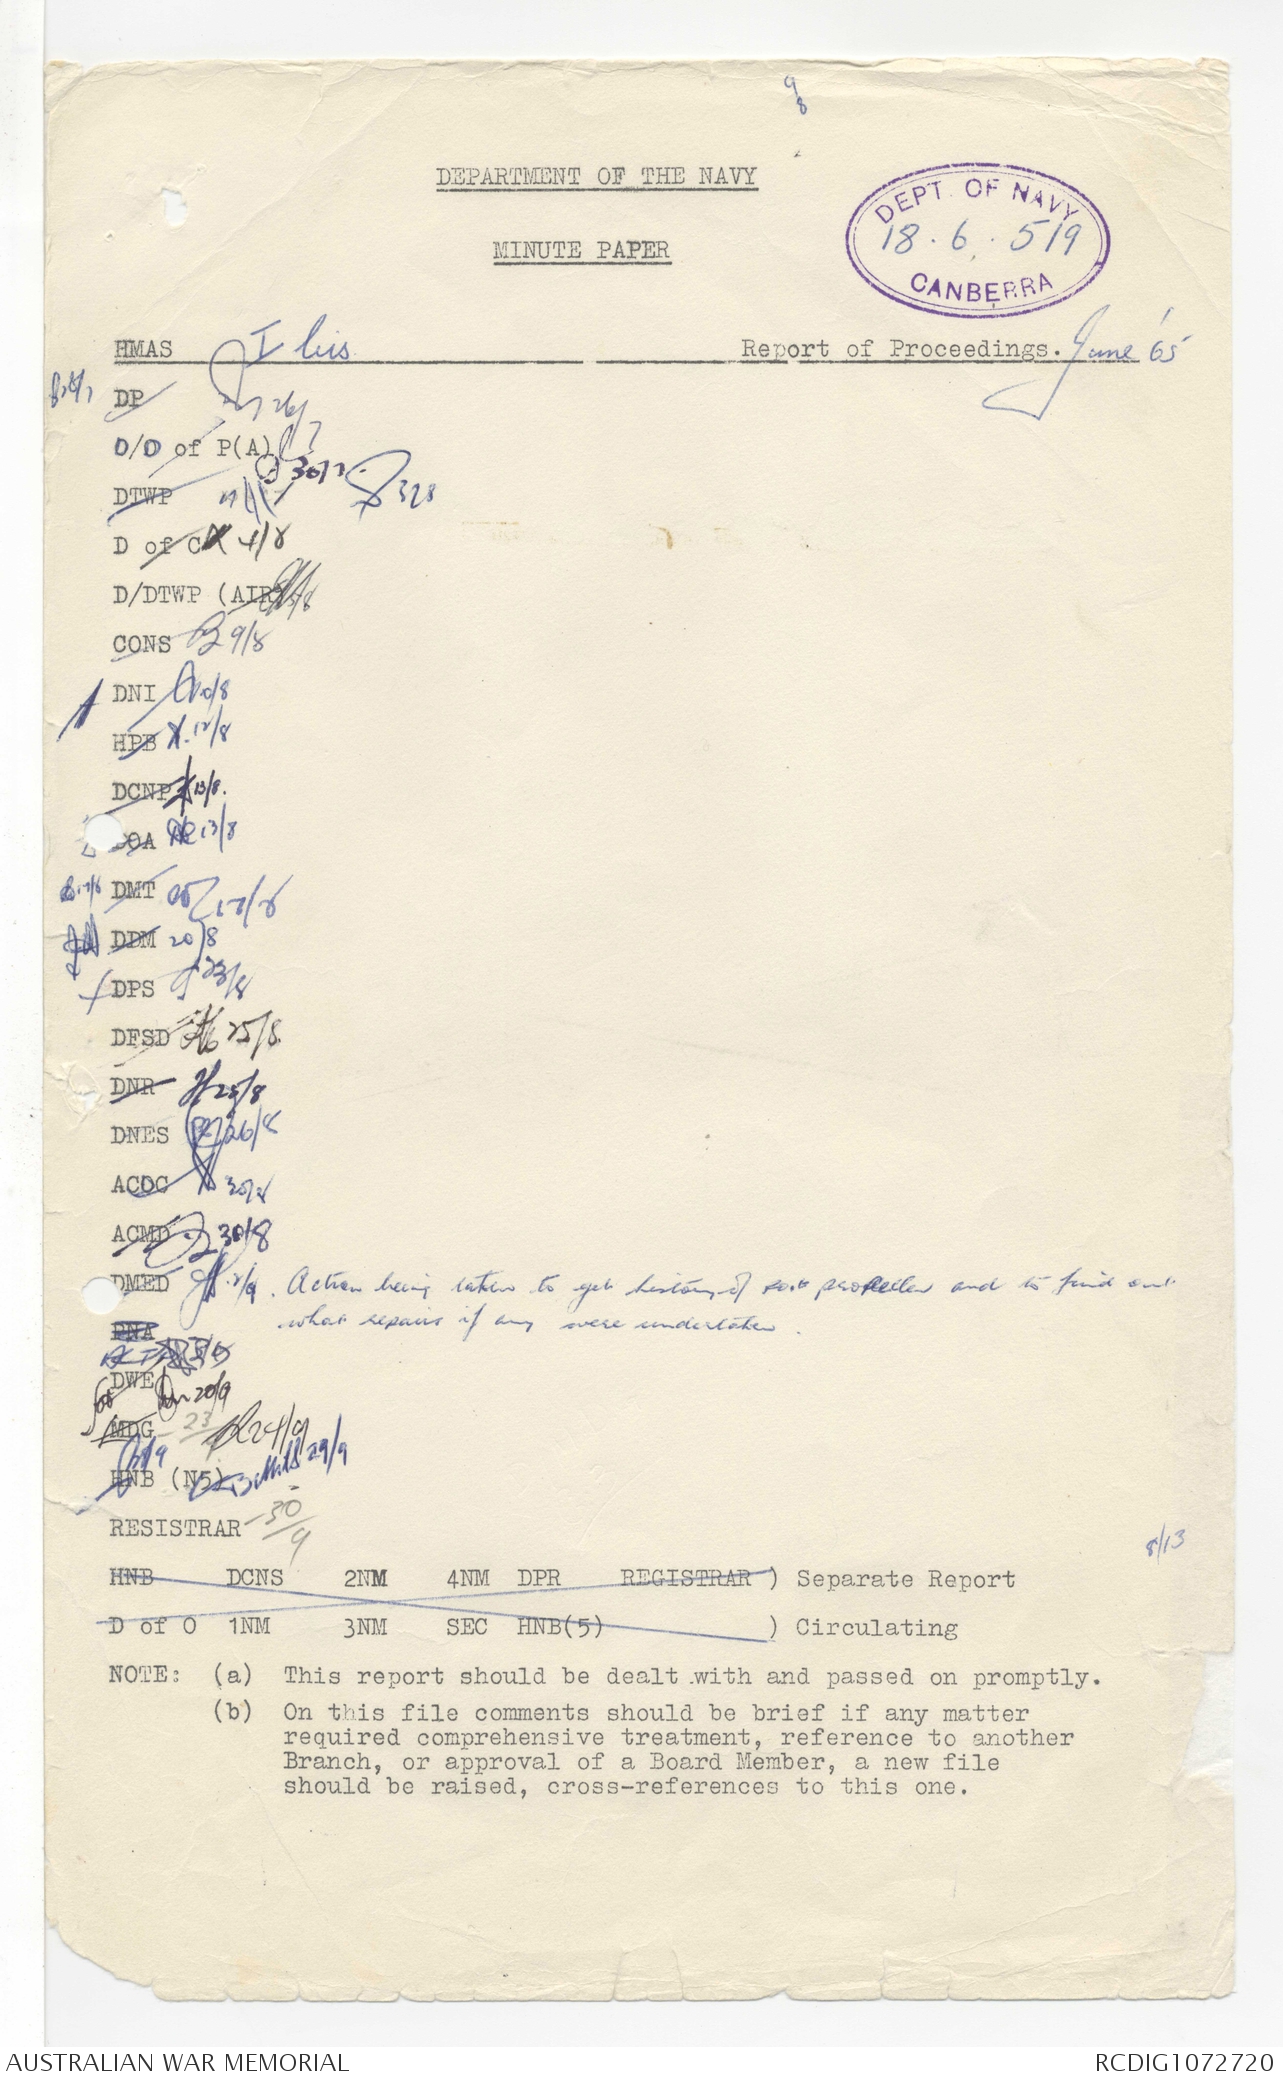 9
8
DEPARTMENT OF THE NAVY
DEPT. OF NAVY
18.6.519
CANBERRA
MINUTE PAPER
HMAS Ibis Report of Proceedings. June '65
DP
D/D of P(A) 30/7
DTWP
D of C 4/8
D/DTWP (AIR)
CONS 9/8
DNI 10/8
HPB 12/8
DCNP 13/8.
13/8
DMT 17/8
DDM 20/8
DPS 23/8
DFSD 25/8
DNR 25/8
DNES 26/8
ACOC 30/8
ACMD 30/8
DMED Action being taken to get history of port propeller and to find out
what repairs if any were undertaken.
PNA
DWE 20/9
MDG 23 24/9
HNB (N5) 29/9
RESISTRAR 30/9
8/13
HNB DCNS 2NM 4NM DPR REGISTRAR ) Separate Report
D of O 1NM 3NM SEC HNB(5) ) Circulating
NOTE: (a) This report should be dealt with and passed on promptly.
(b) On this file comments should be brief if any matter
required comprehensive treatment, reference to another
Branch, or approval of a Board Member, a new file
should be raised, cross-references to this one.
AUSTRALIAN WAR MEMORIAL RCDIG1072720